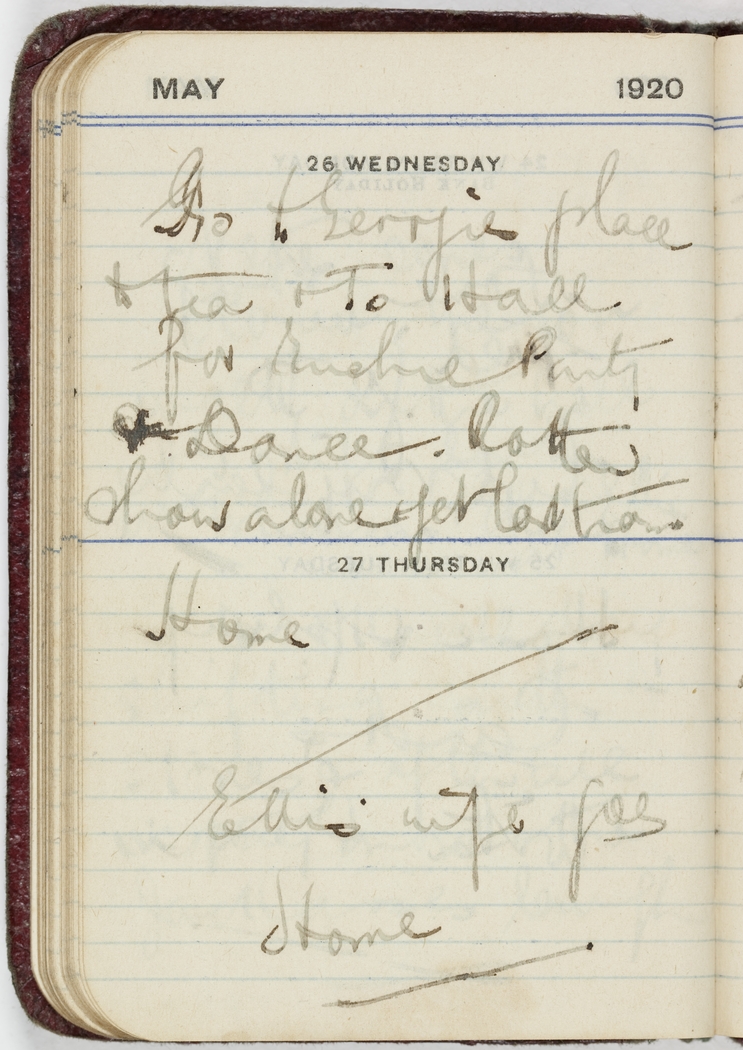 MAY 1920
26 WEDNESDAY
Go to Georgie place
to Tea & To Hall
for Euchre Party
& Dance. Rotten
show alone get last tram.
27 THURSDAY
Home
Ellis wife goes
Home